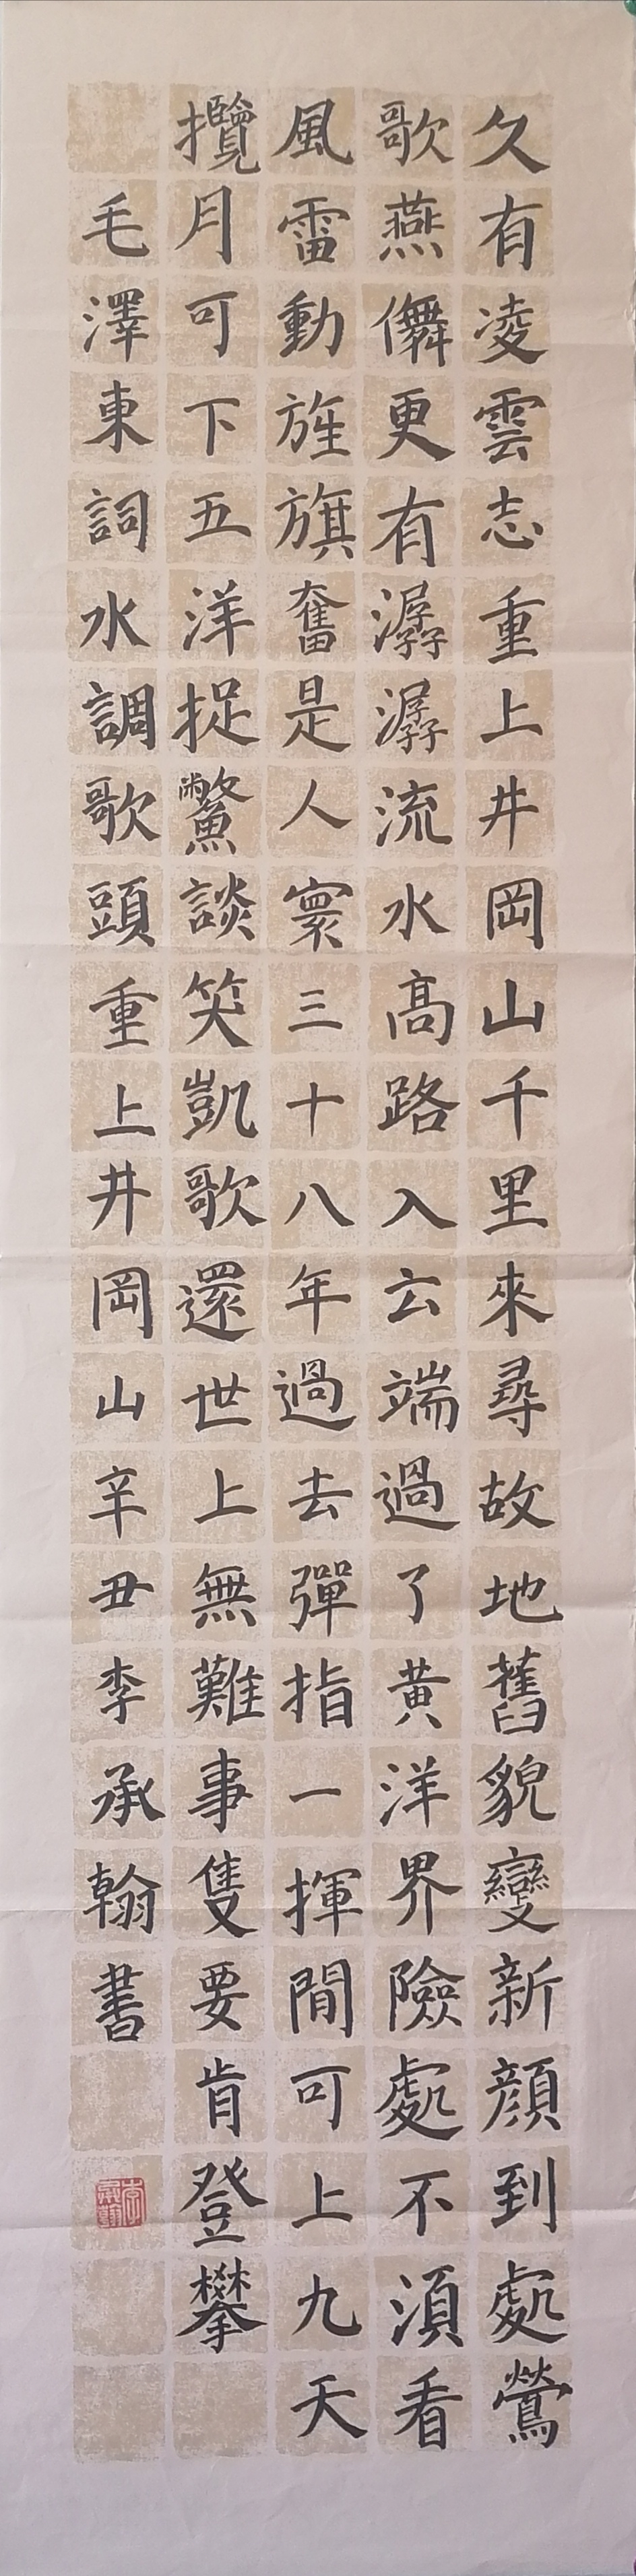 久有凌雲志重上井岡山千里來尋故地舊貌變新顏到處鶯
歌燕儛更有潺潺流水高路入云端過了黄洋界險處不湏看
風雷動旌旗奮是人寰三十八年過去彈指一揮間可上九天
攬月可下五洋捉鱉談笑凱歌還世上無難事隻要肯登攀
毛澤東詞水調歌頭重上井岡山辛丑李承翰書
李承翰